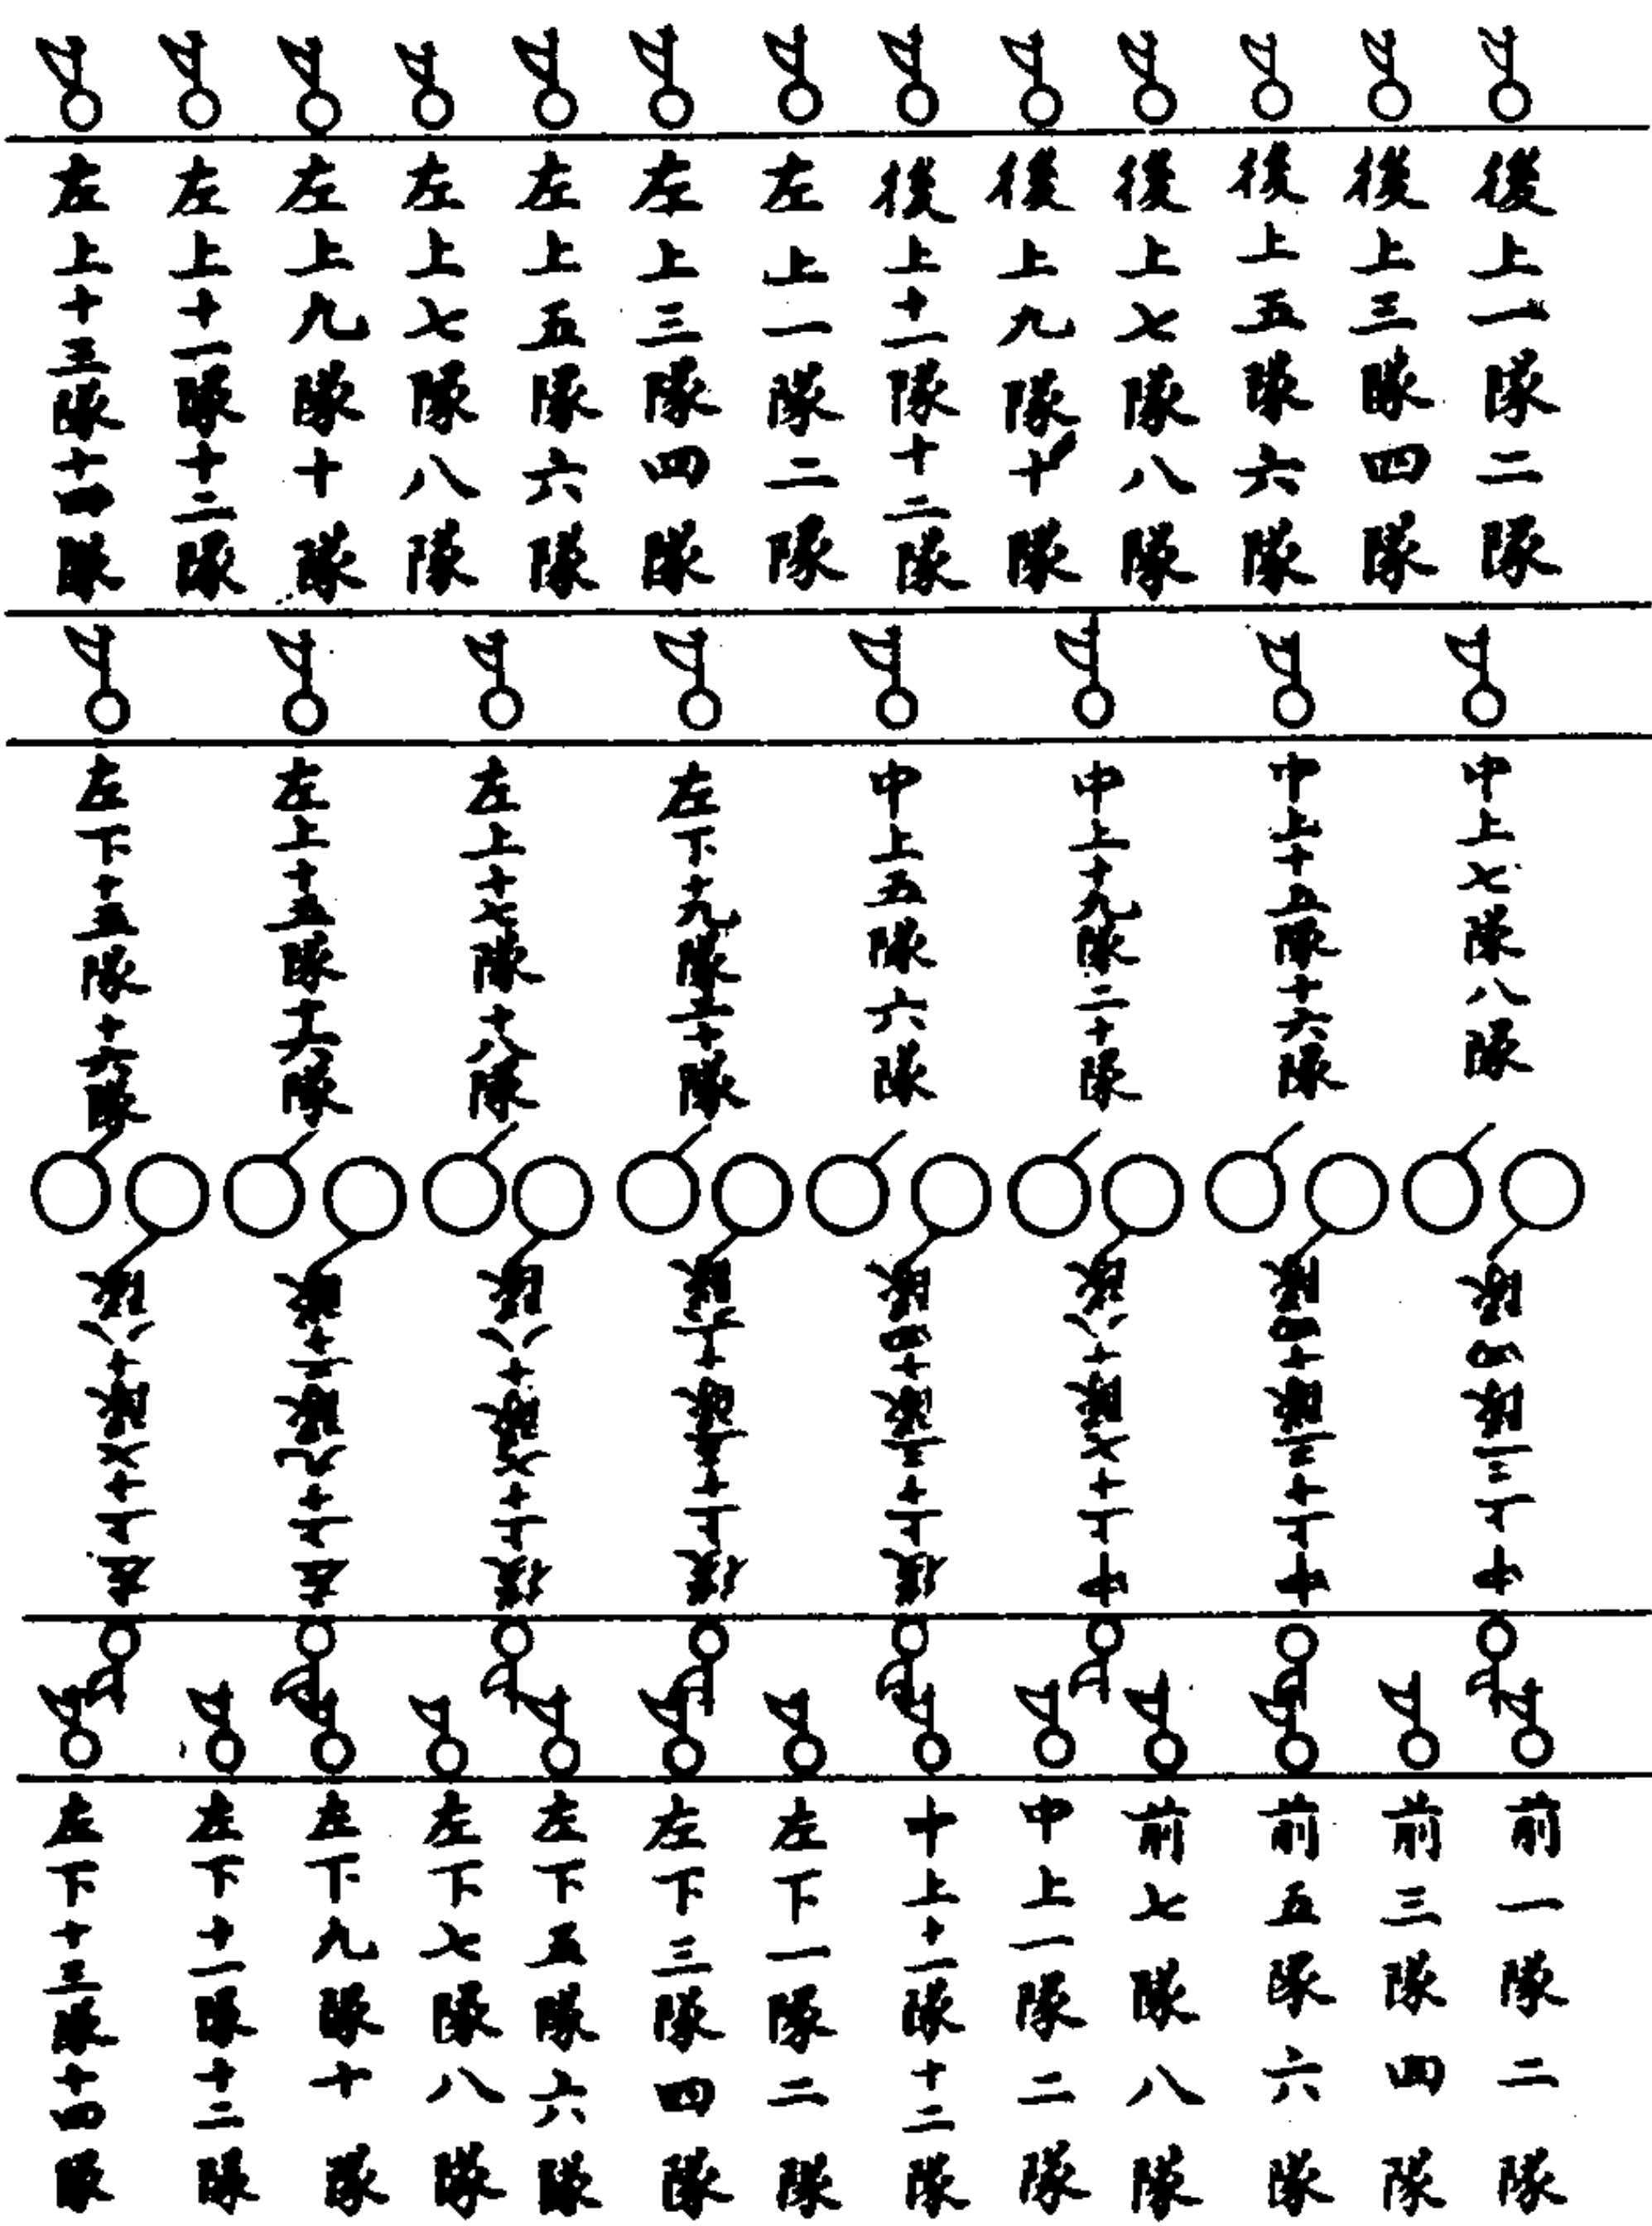 後上一隊二隊
後上三隊四隊
後上五隊六隊
後上七隊八隊
後上九隊十隊
後上十一隊十二隊
左上一隊二隊
左上三隊四隊
左上五隊六隊
左上七隊八隊
左上九隊十隊
左上十一隊十二隊
左上十三隊十一隊
中上七隊八隊
中上十五隊十六隊
中上十九隊二十隊
中上五隊六隊
左下十九隊二十隊
左上十七隊十八隊
左上十五隊十六隊
左下十五隊十六隊
中下三隊四隊
中下十三隊十四隊
中下十七隊十八隊
後下十三隊十四隊
後下十七隊十八隊
左下十七隊十八隊
前一隊二隊
前三隊四隊
前五隊六隊
前七隊八隊
中上一隊二隊
十上十一隊十二隊
左下一隊二隊
左下三隊四隊
左下五隊六隊
左下七隊八隊
左下九隊十隊
左下十一隊十二隊
左下十三隊十四隊